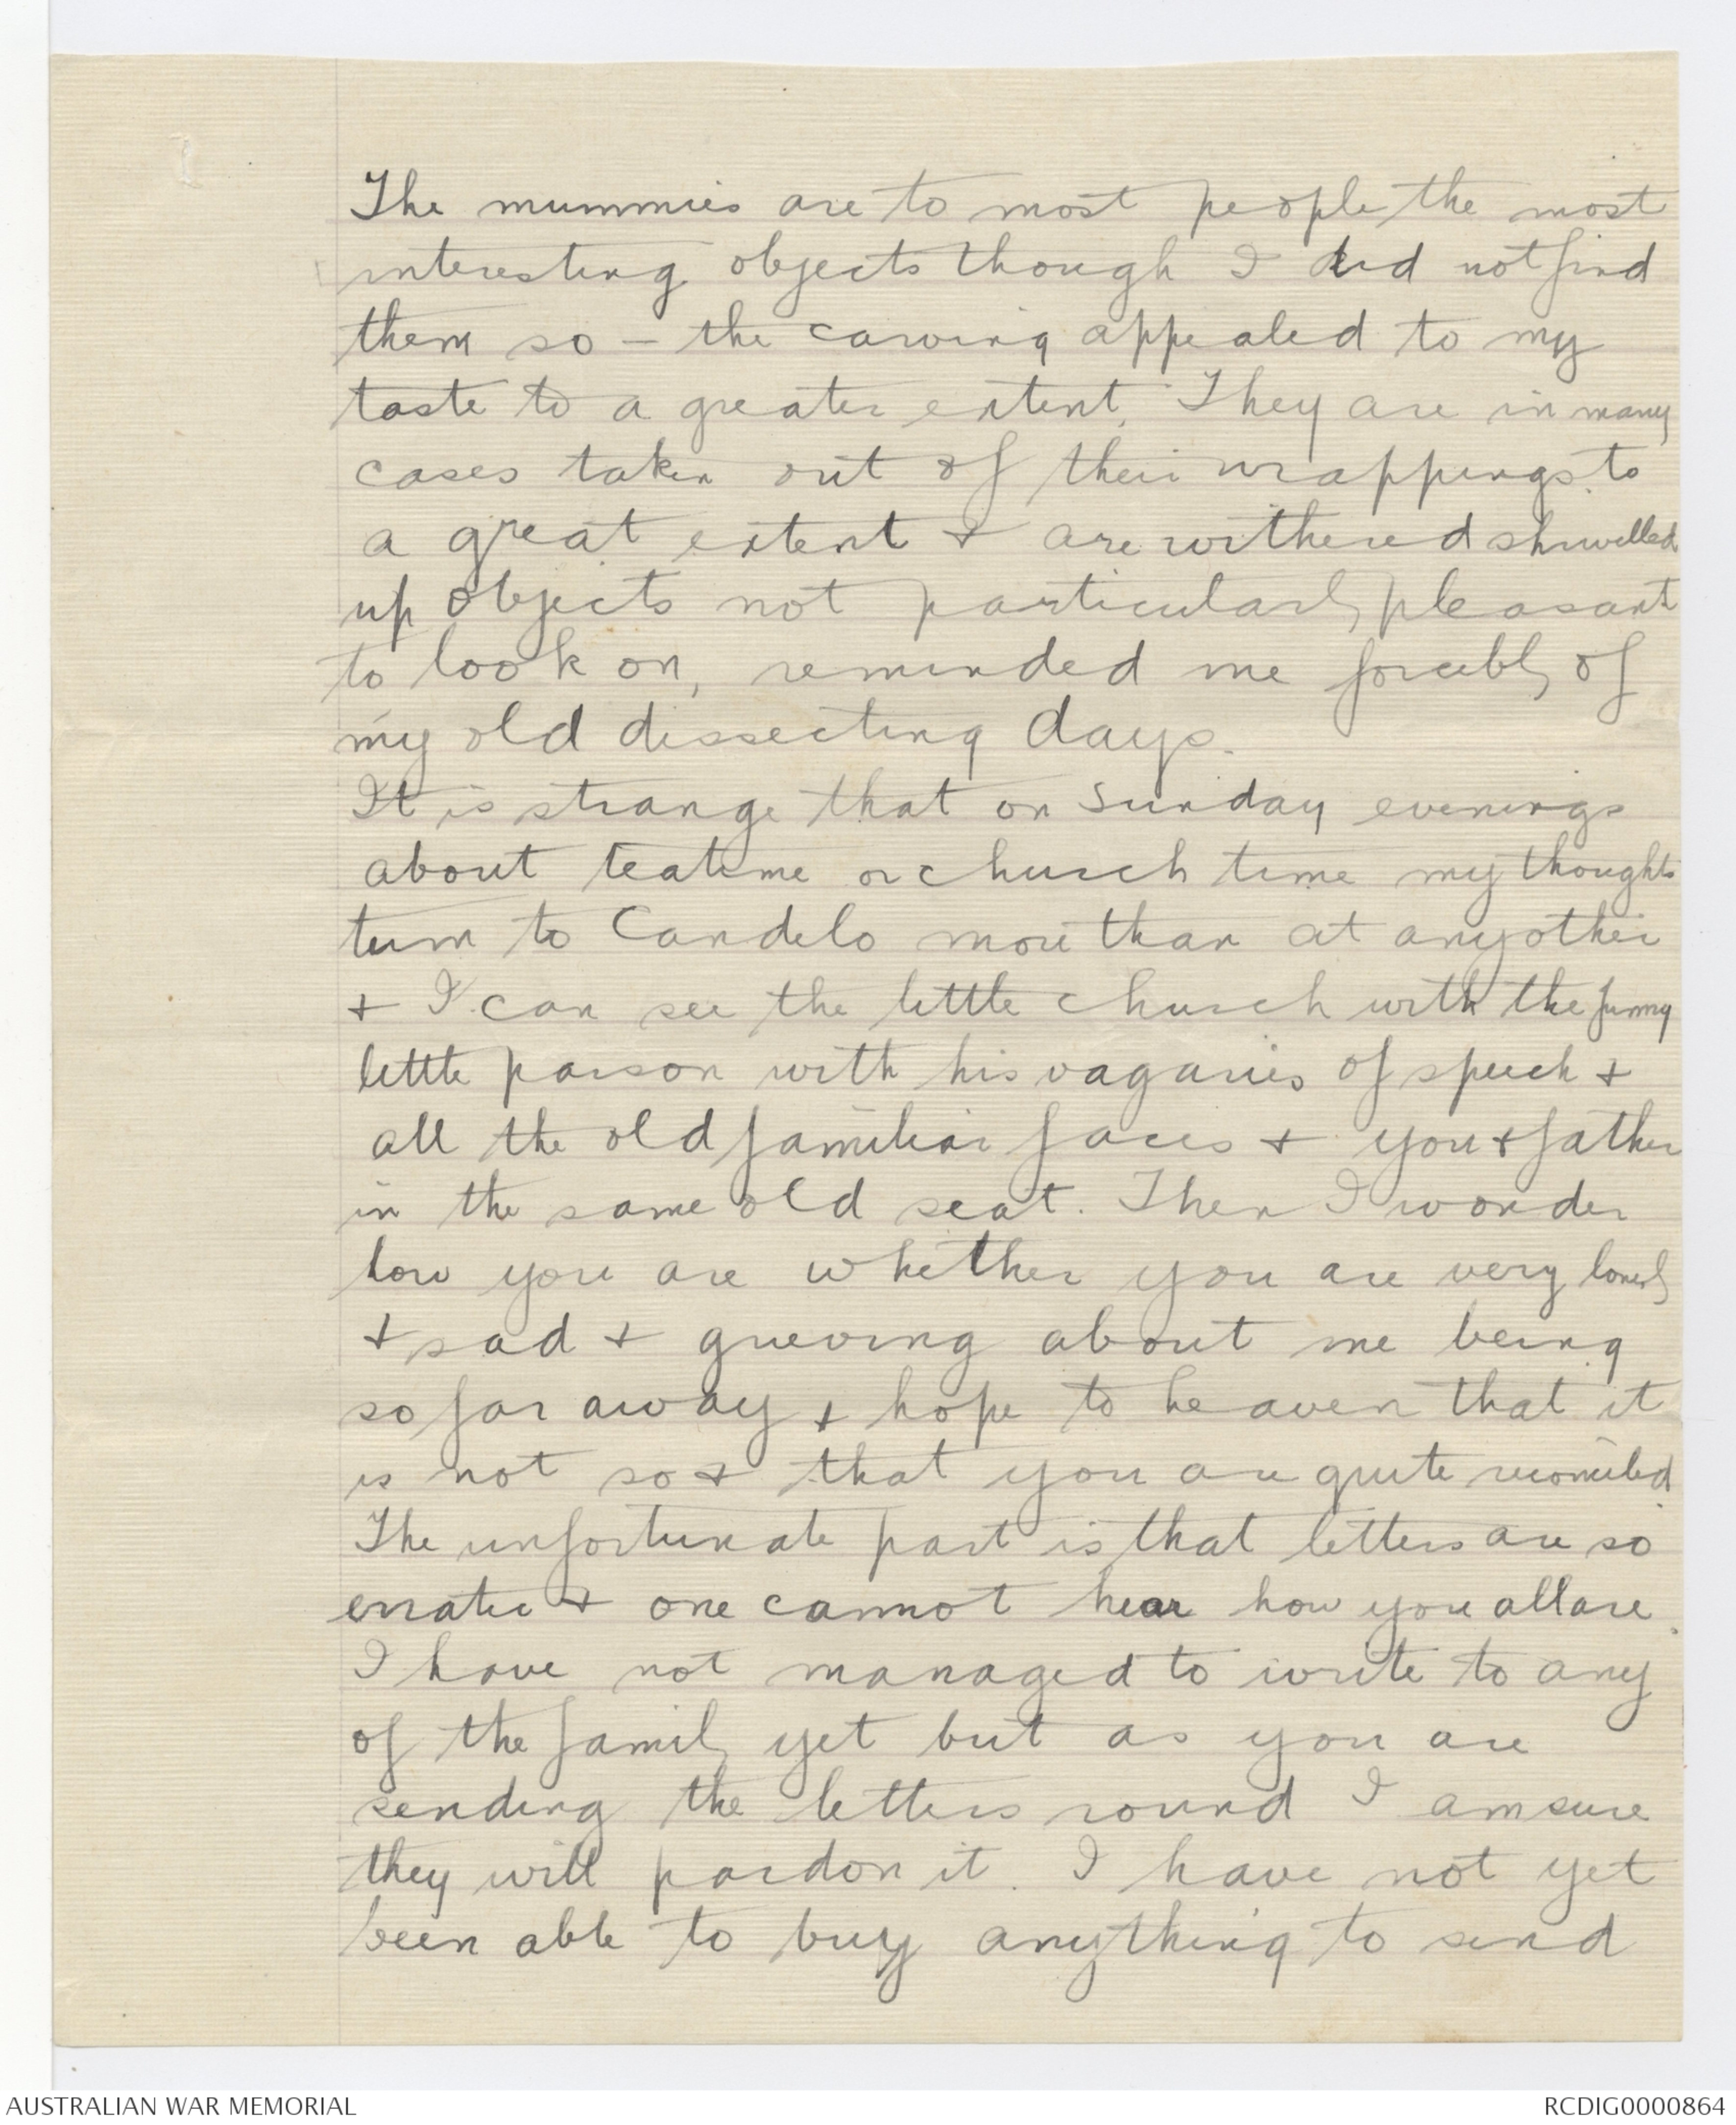 The mummies are to most people the most
interesting objects though I did not find
them so - the carving appealed to my
taste to a greater extent. They are in many
cases taken out of their wrappings to
a great extent & are withered shrivelled
up objects not particularly pleasant
to look on, reminded me forcibly of
my old dissecting days.
It is strange that on Sunday evenings
about teatime or church time my thoughts
turn to Candelo more than at any other
& I can see the little church with the funny
little parson with his vagaries of speech &
all the old familiar faces & you & father
in the same old seat. Then I wonder
how you are whether you are very lonely
& sad & grieving about me being
so far away & hope to heaven that it
is not so & that you are quite reconciled.
The unfortunate part is that letters are so
erratic & one cannot hear how you all are.
I have not managed to write to any
of the family yet but as you are
sending the letters round I am sure
they will pardon it. I have not yet
been able to buy anything to send
AUSTRALIAN WAR MEMORIAL
RCDIG0000864